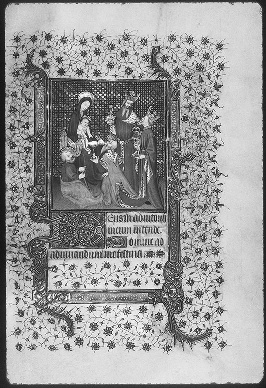 Deus in adiutorium
meum intende
Domine ad
adiuuandum me festina